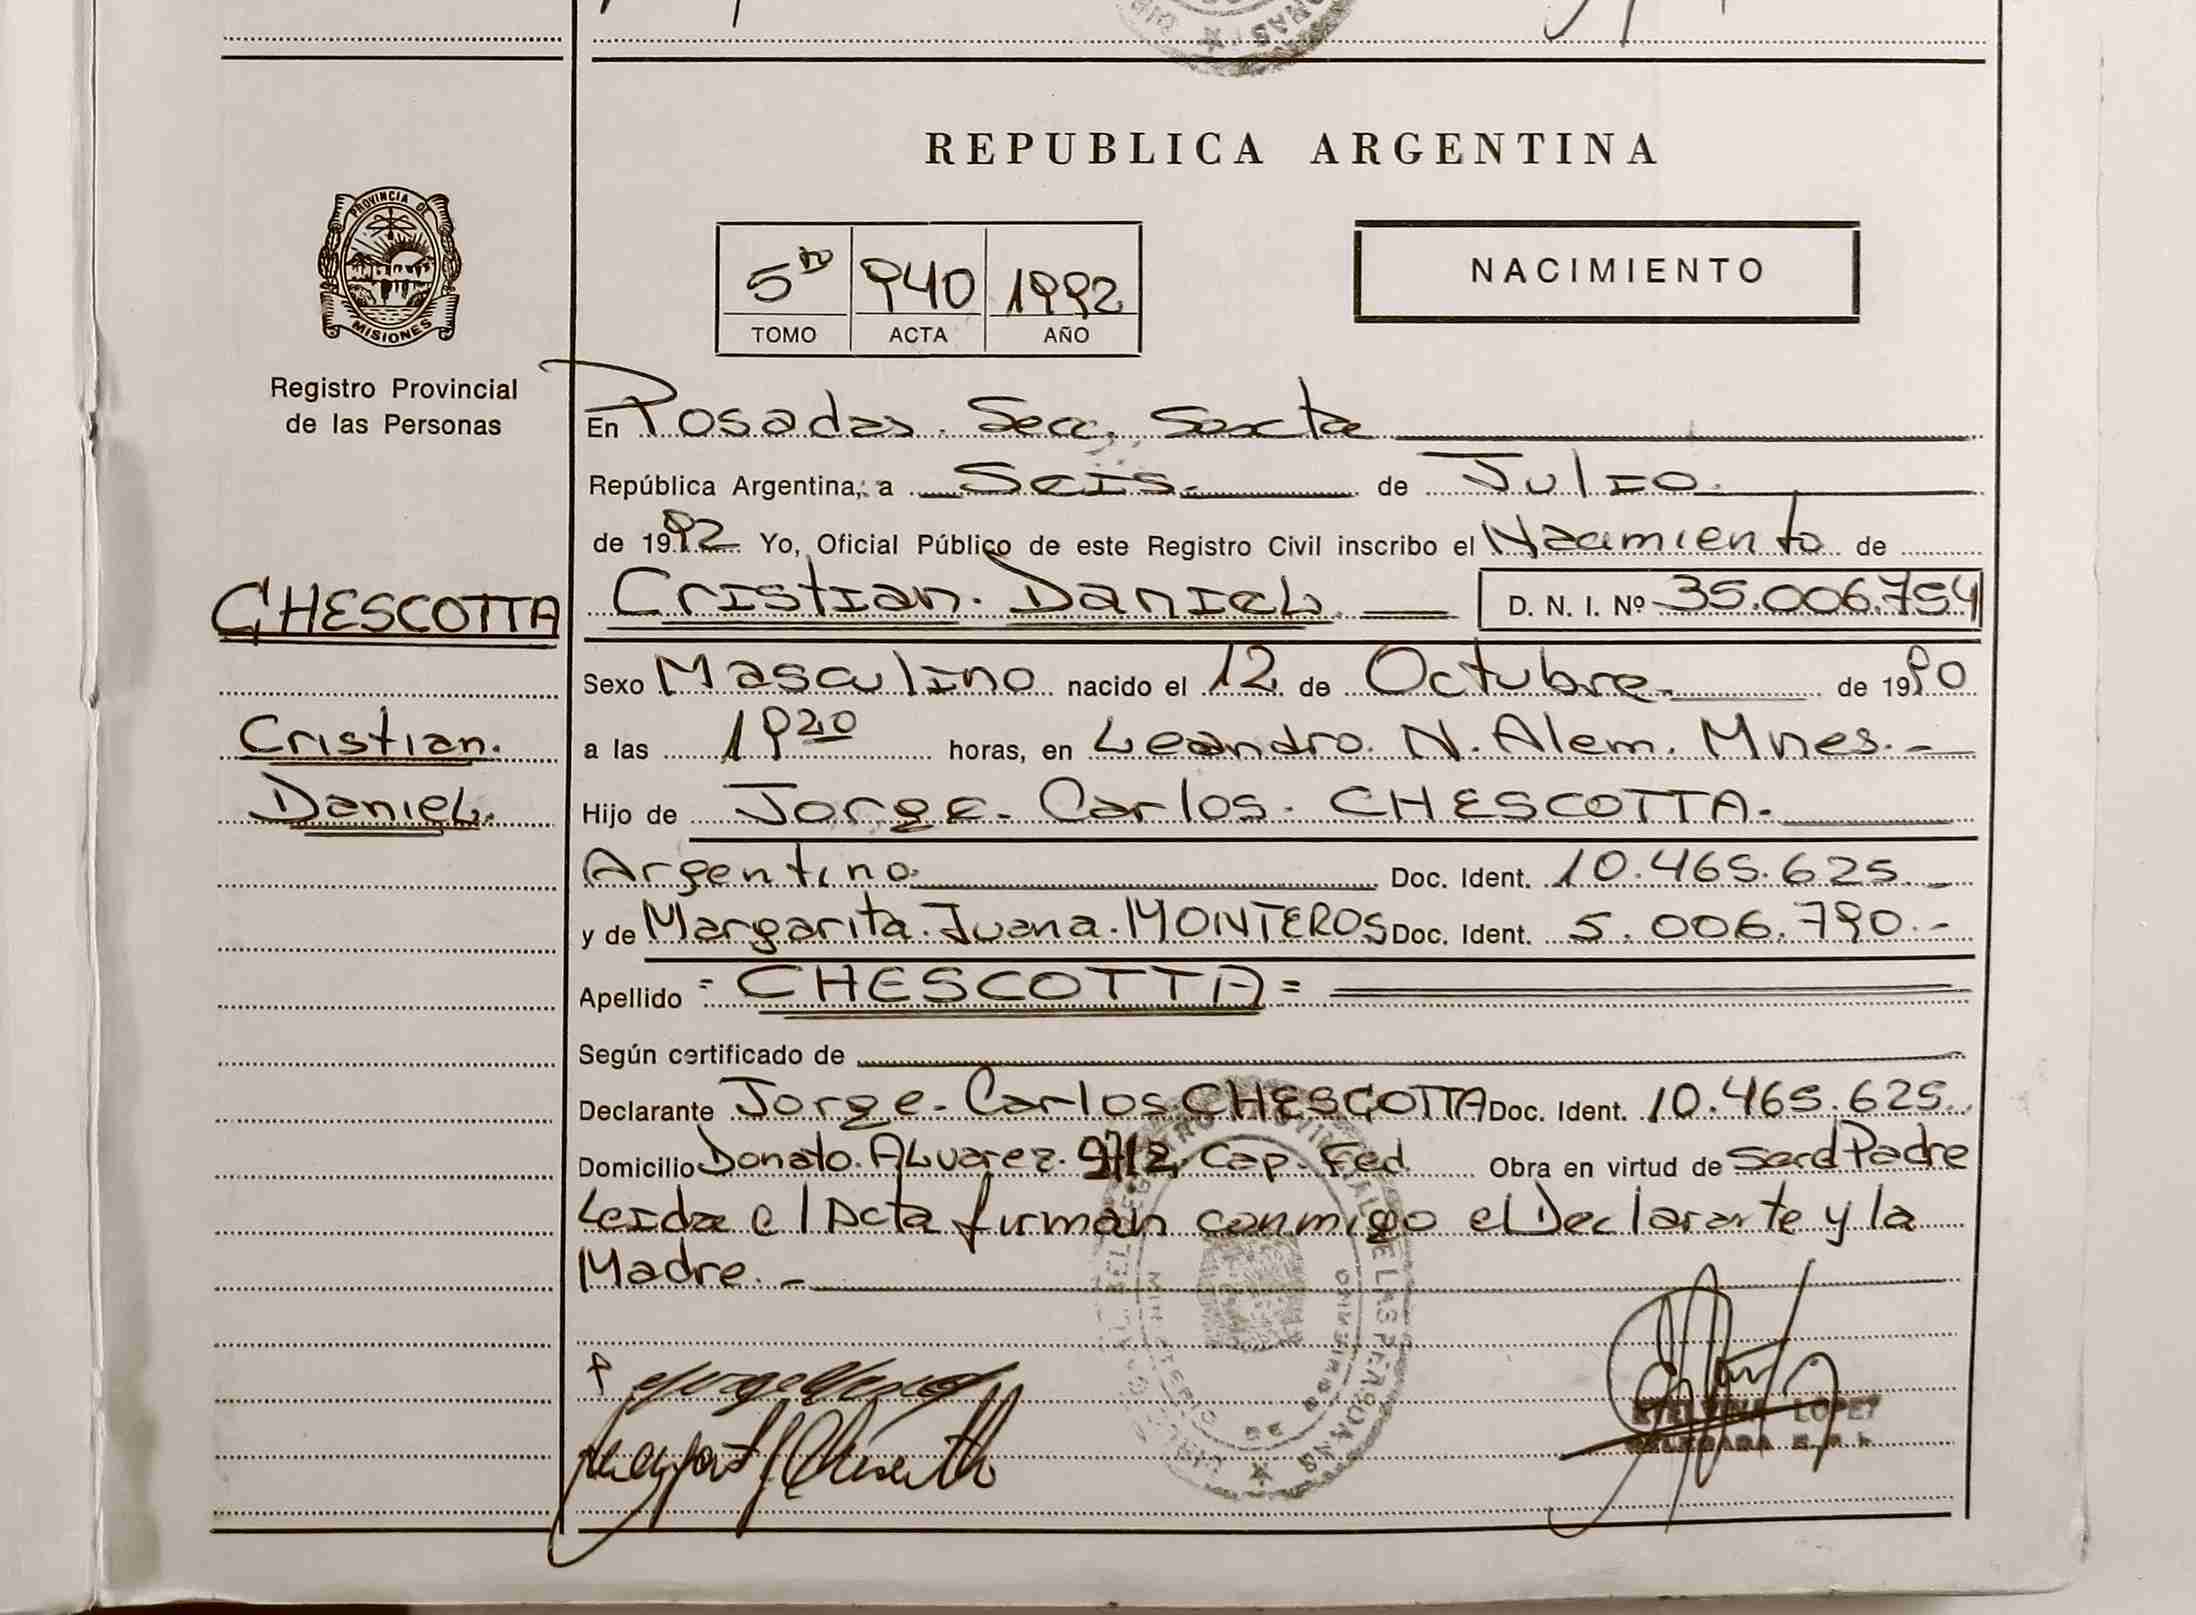 REPUBLICA ARGENTINA
PROVINCIA DE
MISIONES
Registro Provincial
de las Personas
CHESCOTTA
Cristian.
Daniel.
5to 940 1992
TOMO ACTA AÑO
NACIMIENTO
En Posadas. Secc. Sexta
República Argentina, a Seis. de Julio.
de 1992 Yo, Oficial Público de este Registro Civil inscribo el Nacimiento de
Cristian. Daniel. D. N. I. Nº 35.006.754
Sexo Masculino nacido el 12 de Octubre. de 1990
a las 19 20 horas, en Leandro. N. Alem. Mnes.-
Hijo de Jorge. Carlos. CHESCOTTA.
Argentino. Doc. Ident. 10.465.625.-
y de Margarita. Juana. MONTEROS Doc. Ident. 5.006.790.-
Apellido = CHESCOTTA =
Según certificado de
Declarante Jorge. Carlos CHESCOTTA Doc. Ident. 10.465.625.
Domicilio Donato. Alvarez. Cap. Fed Obra en virtud de Ser el Padre
Leida el Acta firman conmigo el Declarante y la
Madre.-
LOPEZ